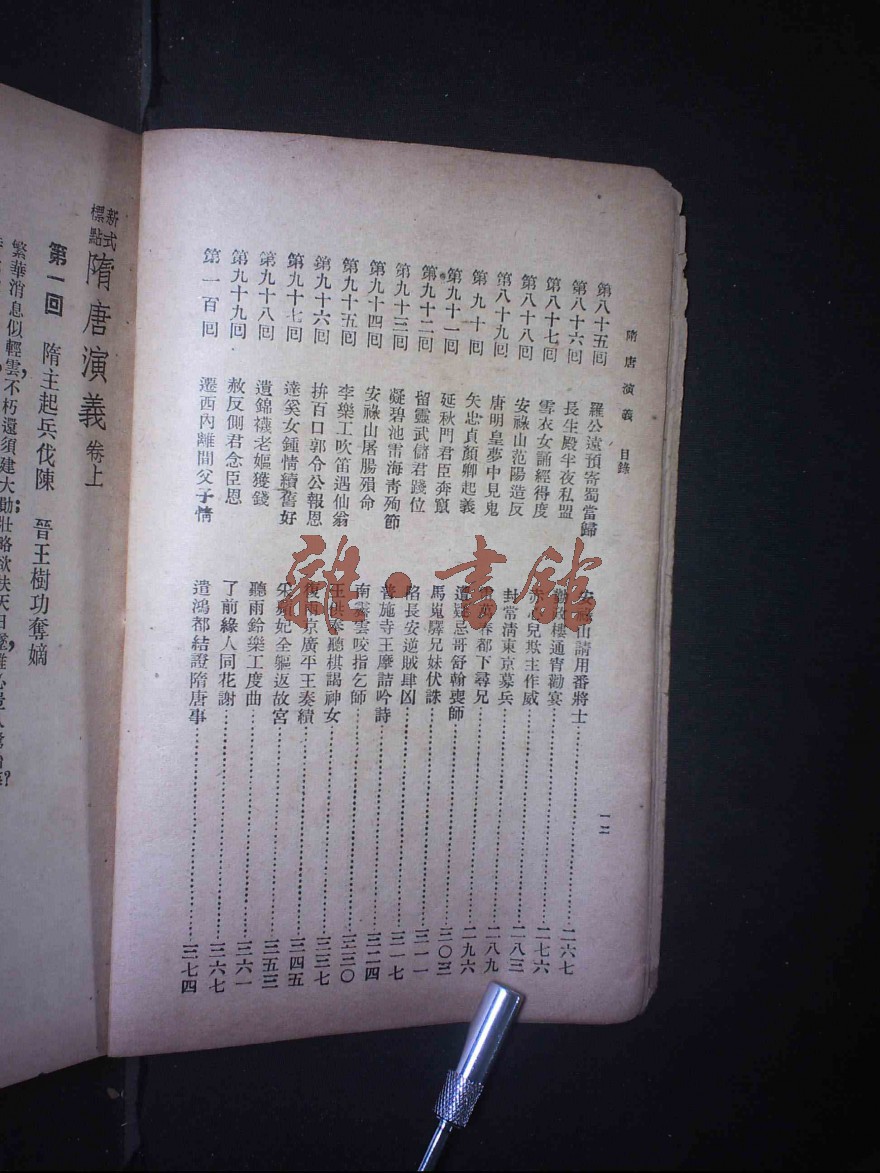 隋唐演義 目錄
一二
第八十五回 羅公遠預寄蜀當歸 安祿山請用番將士……二六七
第八十六回 長生殿半夜私盟 勤政樓通宵歡宴……二七六
第八十七回 雪衣女誦經得度 赤心兒欺主作威……二八三
第八十八回 安祿山范陽造反 封常清東京募兵……二八九
第八十九回 唐明皇夢中見鬼 雷萬春都下尋兄……二九六
第九十回 矢忠貞顏卿起義 遭疑忌哥舒翰喪師……三〇三
第九十一回 延秋門君臣奔竄 馬嵬驛兄妹伏誅……三一一
第九十二回 留靈武儲君踐位 陷長安逆賊肆凶……三一七
第九十三回 凝碧池雷海青殉節 普施寺王摩詰吟詩……三二四
第九十四回 安祿山屠腸殞命 南霽雲咬指乞師……三三〇
第九十五回 李樂工吹笛遇仙翁 王供奉聽棋謁神女……三三七
第九十六回 拚百口郭令公報恩 復兩京廣平王奏績……三四五
第九十七回 達奚女鍾情續舊好 采蘋妃全軀返故宮……三五三
第九十八回 遺錦襪老嫗獲錢 聽雨鈴樂工度曲……三六一
第九十九回 赦反側君念臣恩 了前緣人同花謝……三六七
第一百回 遷西內離間父子情 遣鴻都結證隋唐事……三七四
新式標點 隋唐演義 卷上
第一回 隋主起兵伐陳 晉王樹功奪嫡
繁華消息似輕雲,不朽還須建大勛;壯略欲扶天日墜,
雜·書館